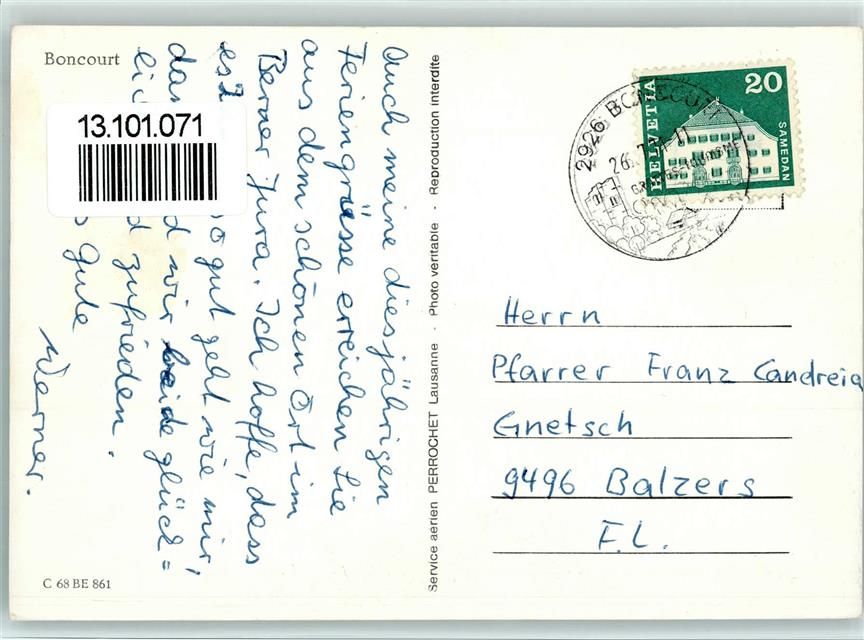 Boncourt
13.101.071
Auch meine diesjährigen
Feriengrüsse erreichen Sie
aus dem schönen Ort im
Berner Jura. Ich hoffe, dass
es I
so gut geht wie mir,
dan
d wir beide glück=
lic
d zufrieden.
s gute
Werner.
C 68 BE 861
Service aerien PERROCHET Lausanne · Photo veritable · Reproduction interdite
2926 BONCOURT
26.7.
HELVETIA
20
SAMEDAN
Herrn
Pfarrer Franz Candreia
Gnetsch
9496 Balzers
F.L.